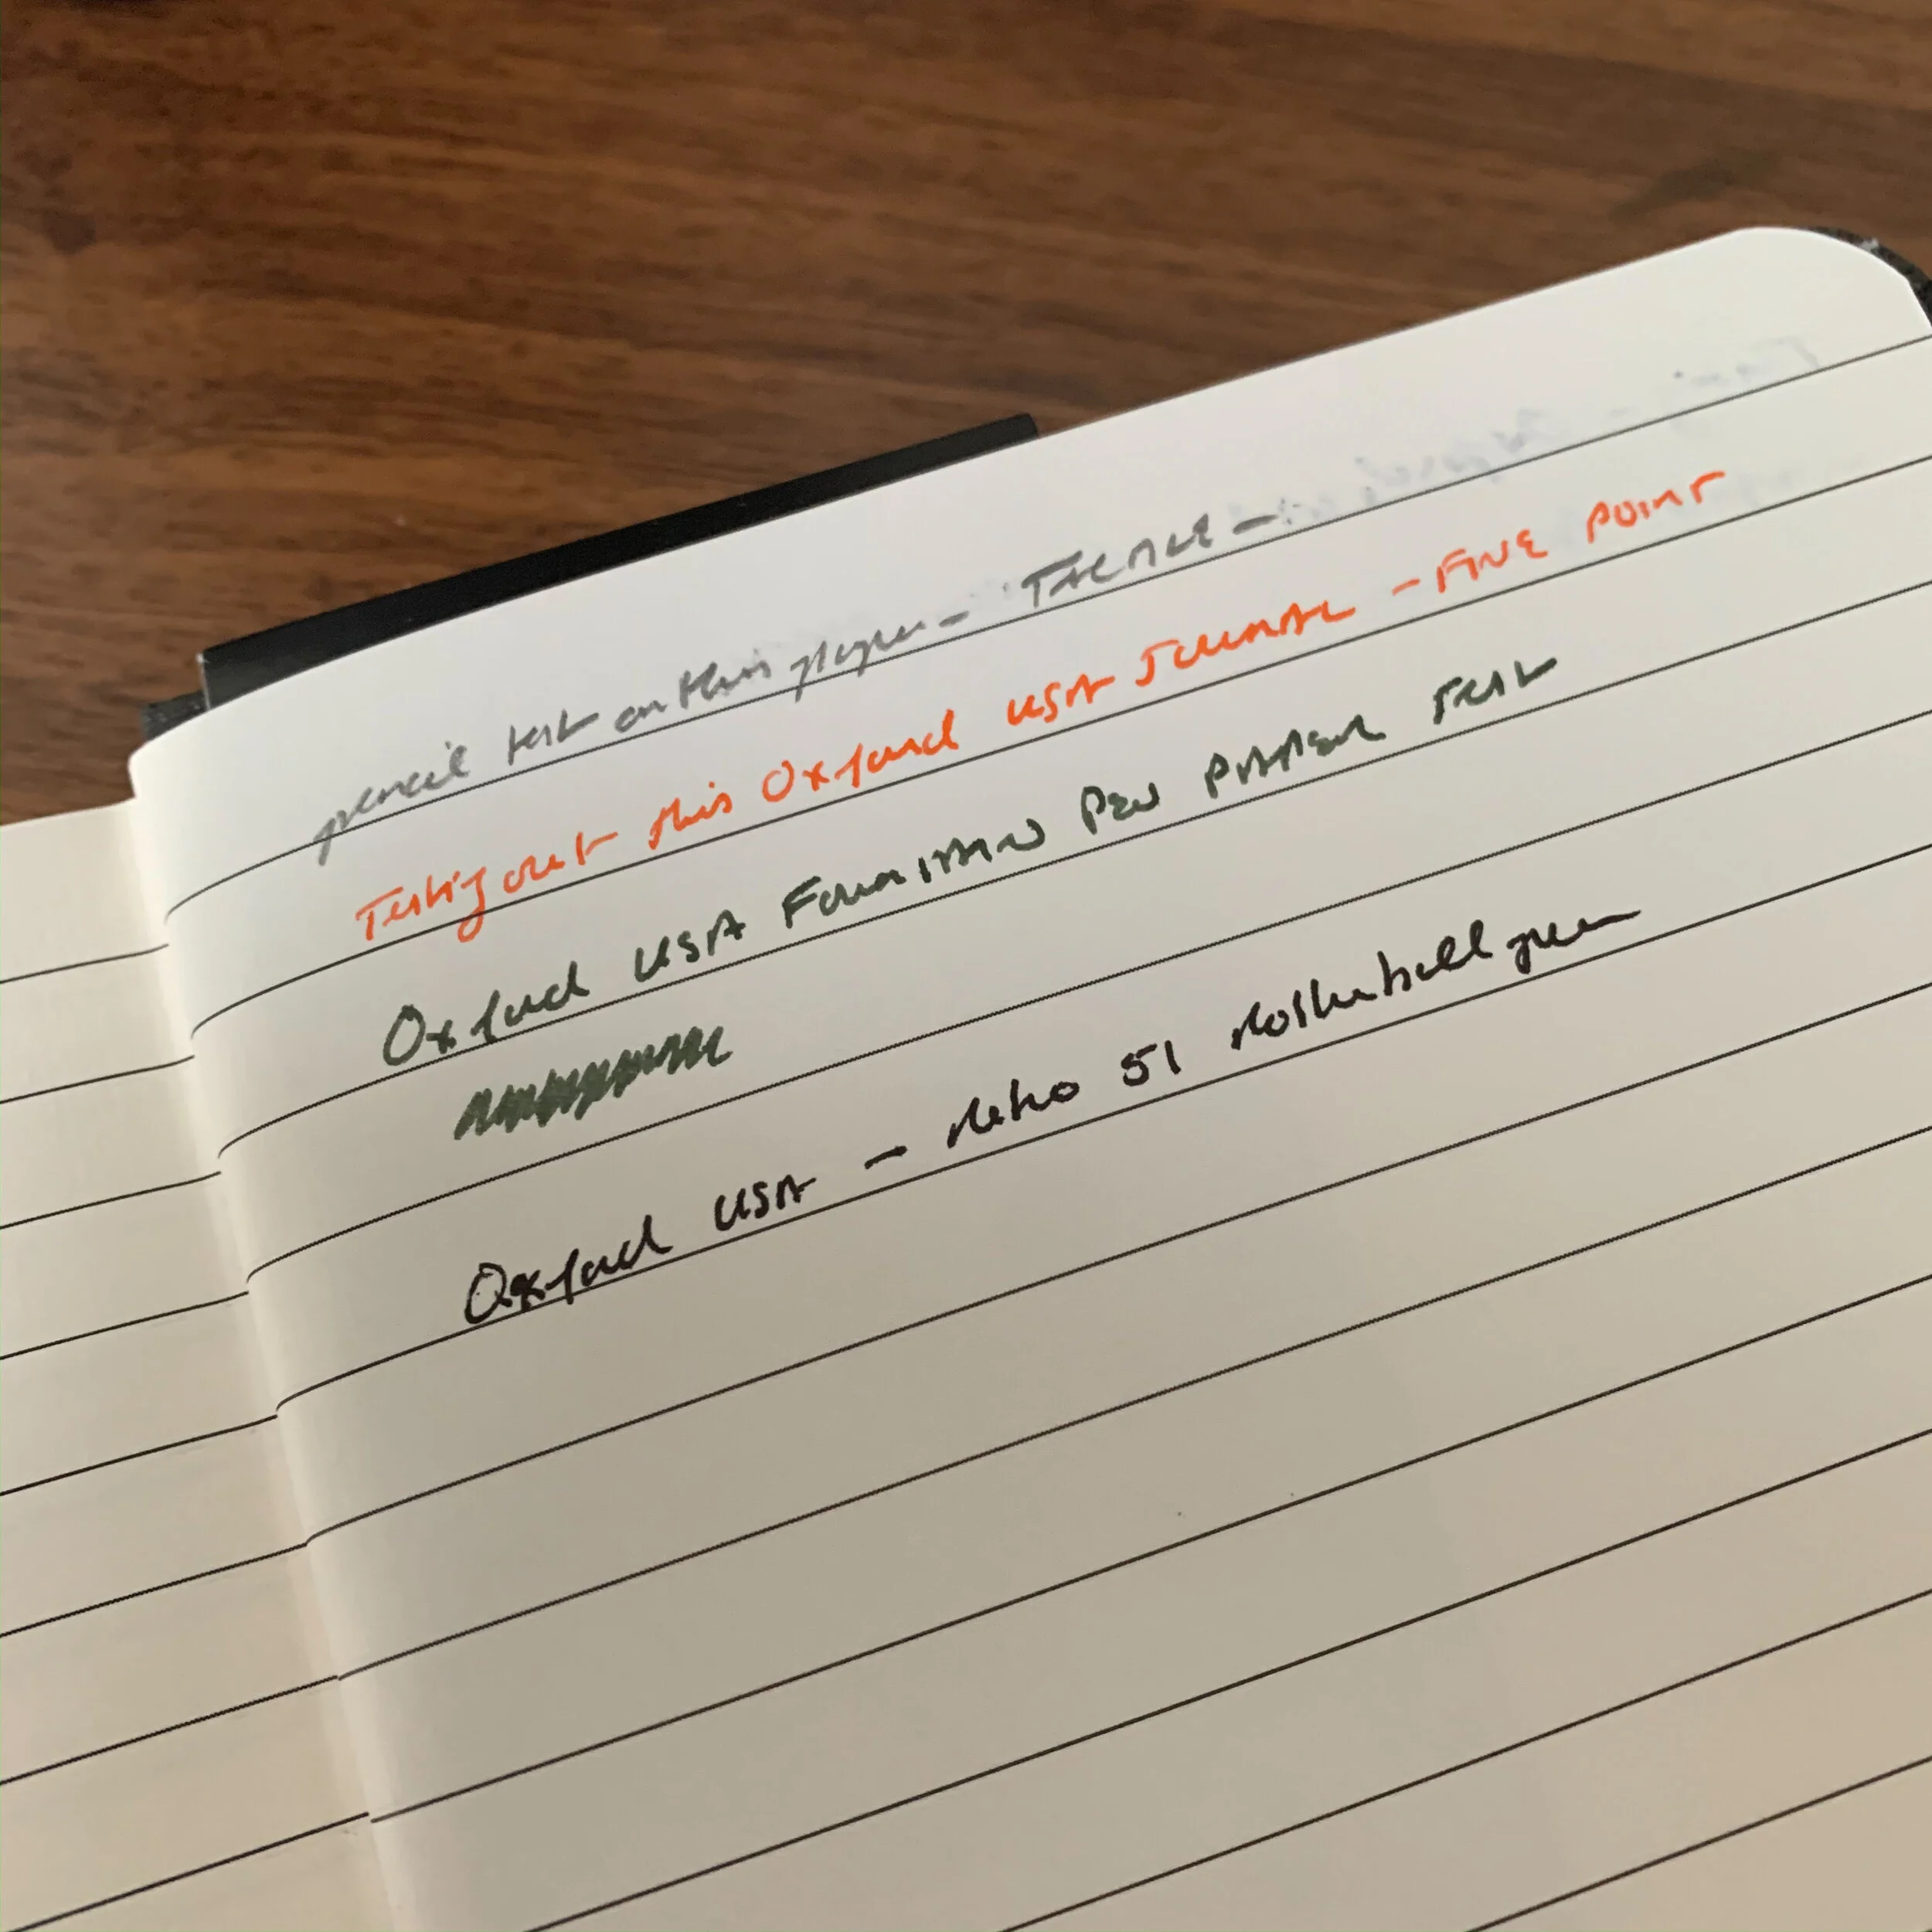 pencil test on this paper -
Testing out this Oxford USA Journal - FINE POINT
Oxford USA FOUNTAIN PEN PAPER TEST
Oxford USA - Retro 51 Rollerball pen